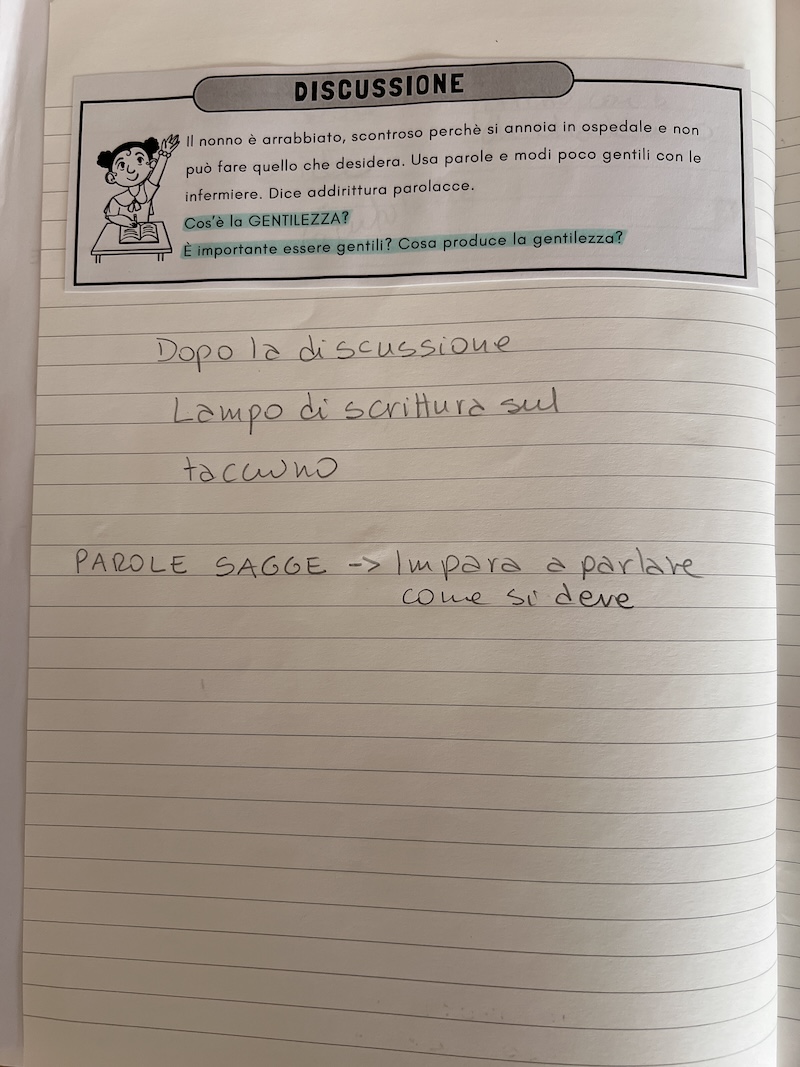 DISCUSSIONE
Il nonno è arrabbiato, scontroso perchè si annoia in ospedale e non
può fare quello che desidera. Usa parole e modi poco gentili con le
infermiere. Dice addirittura parolacce.
Cos'è la GENTILEZZA?
È importante essere gentili? Cosa produce la gentilezza?
Dopo la discussione
Lampo di scrittura sul
taccuino
PAROLE SAGGE -> Impara a parlare
come si deve